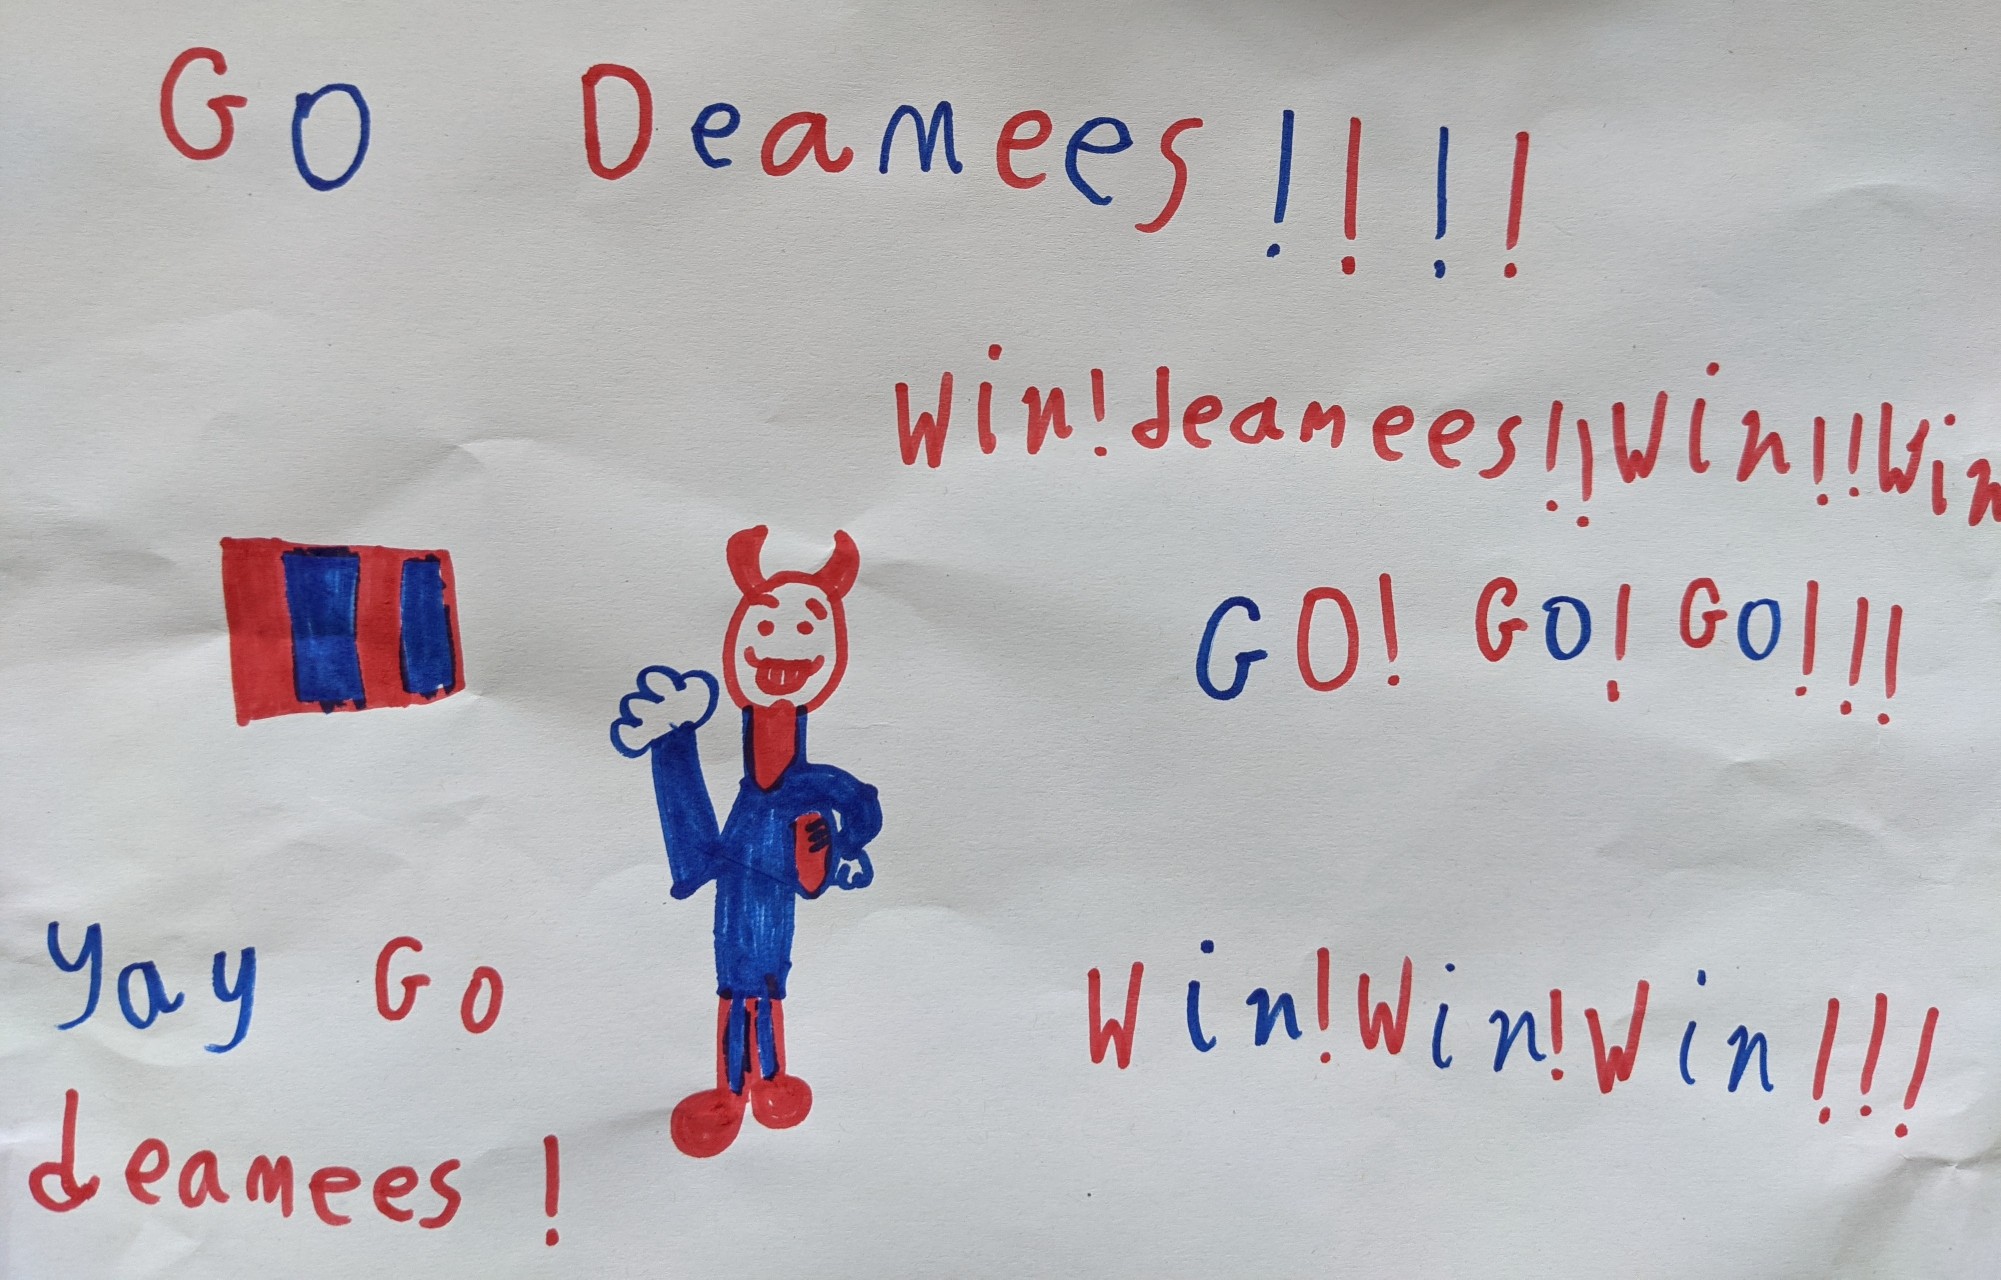 Go Deamees!!!!
Win!deamees!!Win!!Win
GO! GO! GO!!!
Yay Go
Win!Win!Win!!!
deamees!